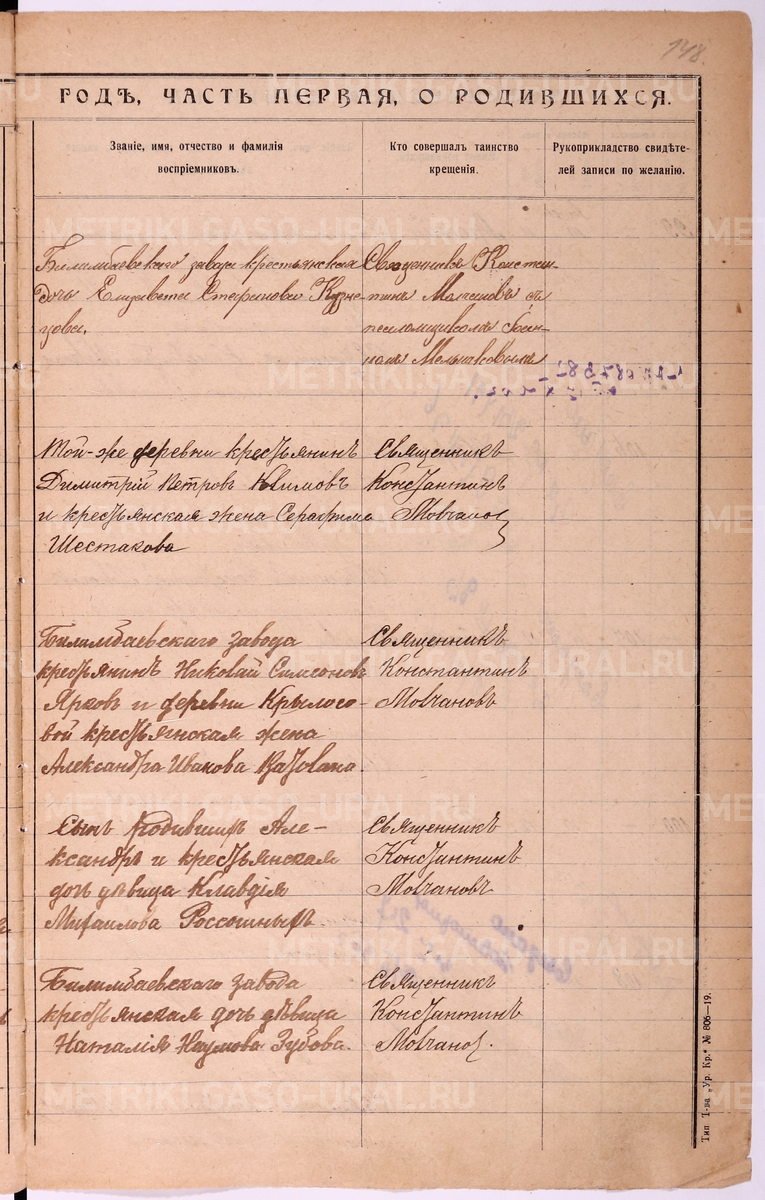 148.
ГОДѢ, ЧАСТЬ ПЕРВАЯ, О РОДИВШИХСЯ.
Званіе, имя, отчество и фамилія
воспріемниковъ.
Кто совершалъ таинство
крещенія.
Рукоприкладство свидѣте-
лей записи по желанію.
METRIKI.GASO-URAL.RU
Билимбаевскаго завода крестьянская
дочь Елизавета Стефанова Кузне-
цова.
Священникъ Констан-
тинъ Молчановъ съ
псаломщикомъ
Мельниковымъ
Той-же деревни крестьянинъ
Димитрій Петровъ Климовъ
и крестьянская жена Серафима
Шестакова
Священникъ
Константинъ
Молчановъ
Билимбаевскаго завода
крестьянинъ Николай Симеоновъ
Ярковъ и деревни Крылосо-
вой крестьянская жена
Александра Иванова
Священникъ
Константинъ
Молчановъ
Сынъ родившихъ Але-
ксандръ и крестьянская
дочь дѣвица Клавдія
Михаилова Россошныхъ.
Священникъ
Константинъ
Молчановъ
Билимбаевскаго завода
крестьянская дочь дѣвица
Наталія Наумова Зубова.
Священникъ
Константинъ
Молчановъ.
Тип. Т-ва „Ур. Кр.“ № 806—19.